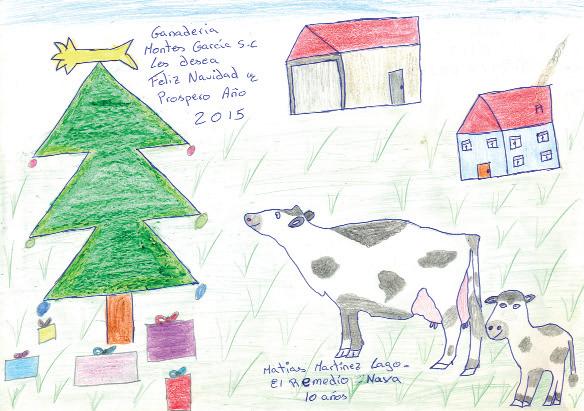 Ganaderia
Montes García S.C
Les desea
Feliz Navidad y
Prospero Año
2015
Matias Martínez Lago-
El Remedio-Nava
10 años